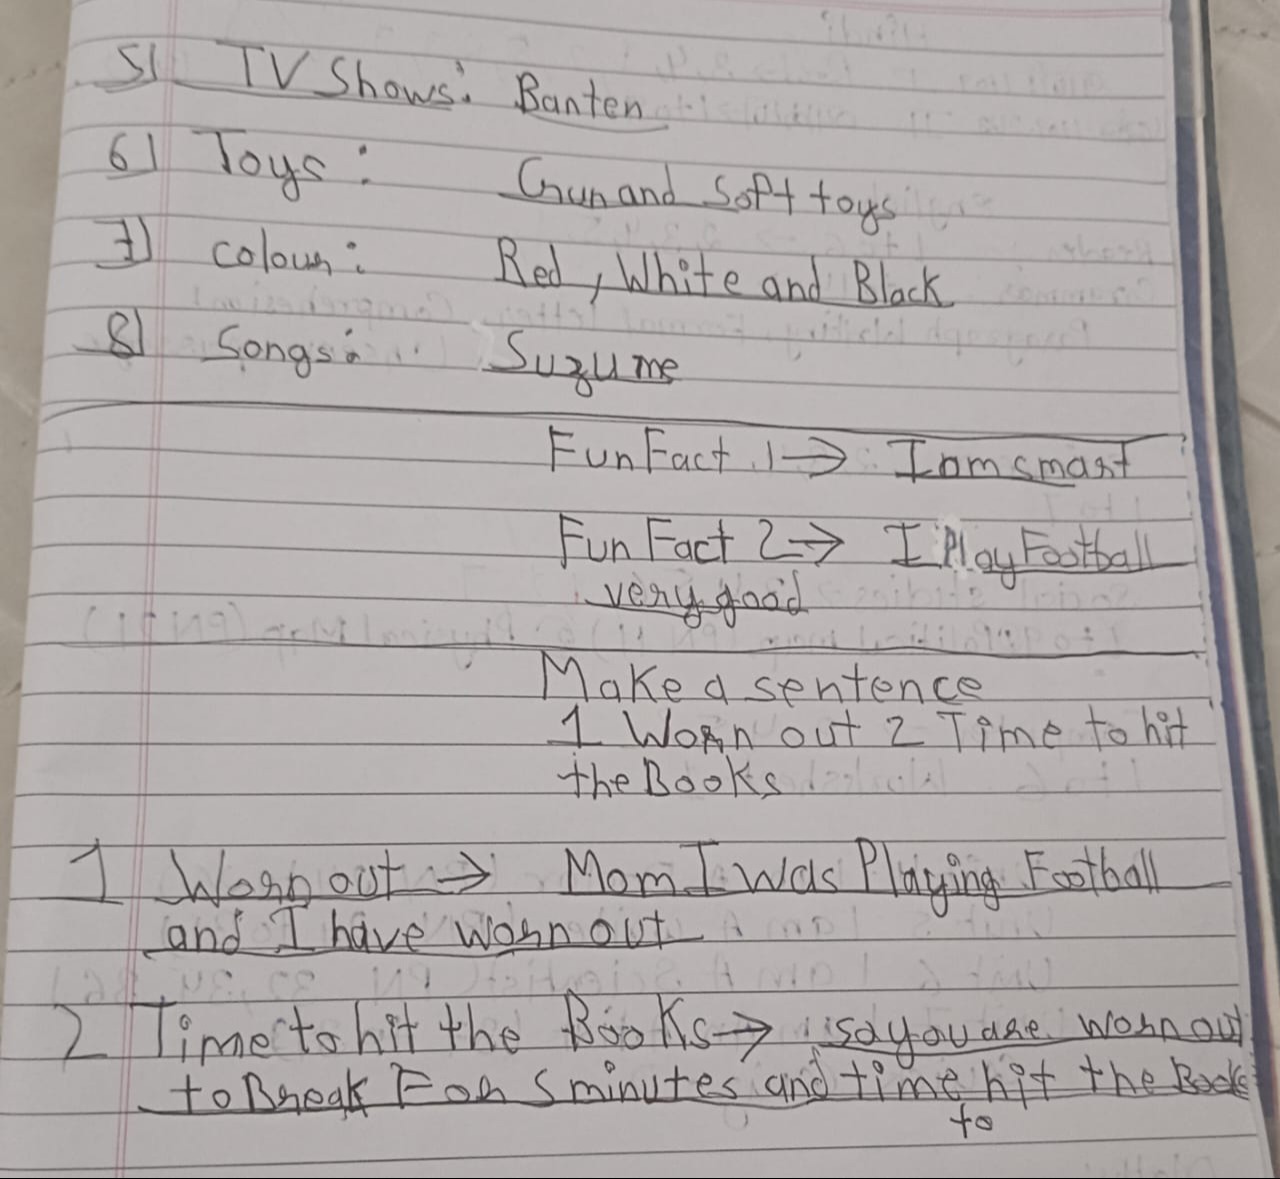 5) TV Shows: Banten
6) Toys: Gun and Soft toys
7) colour: Red, White and Black
8) Songs: Suzume
Fun Fact 1 → I am smart
Fun Fact 2 → I Play Football
very good
Make a sentence
1 Worn out 2 Time to hit
the Books
1 Worn out → Mom I was Playing Football
and I have worn out
2 Time to hit the Books → say you are worn out
to Break For 5 minutes and time hit the Books
to